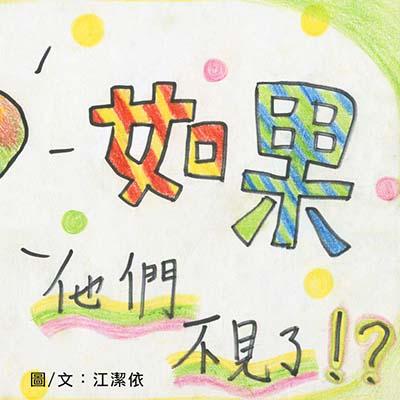 茹果
他們
不見了!?
圖/文：江潔依